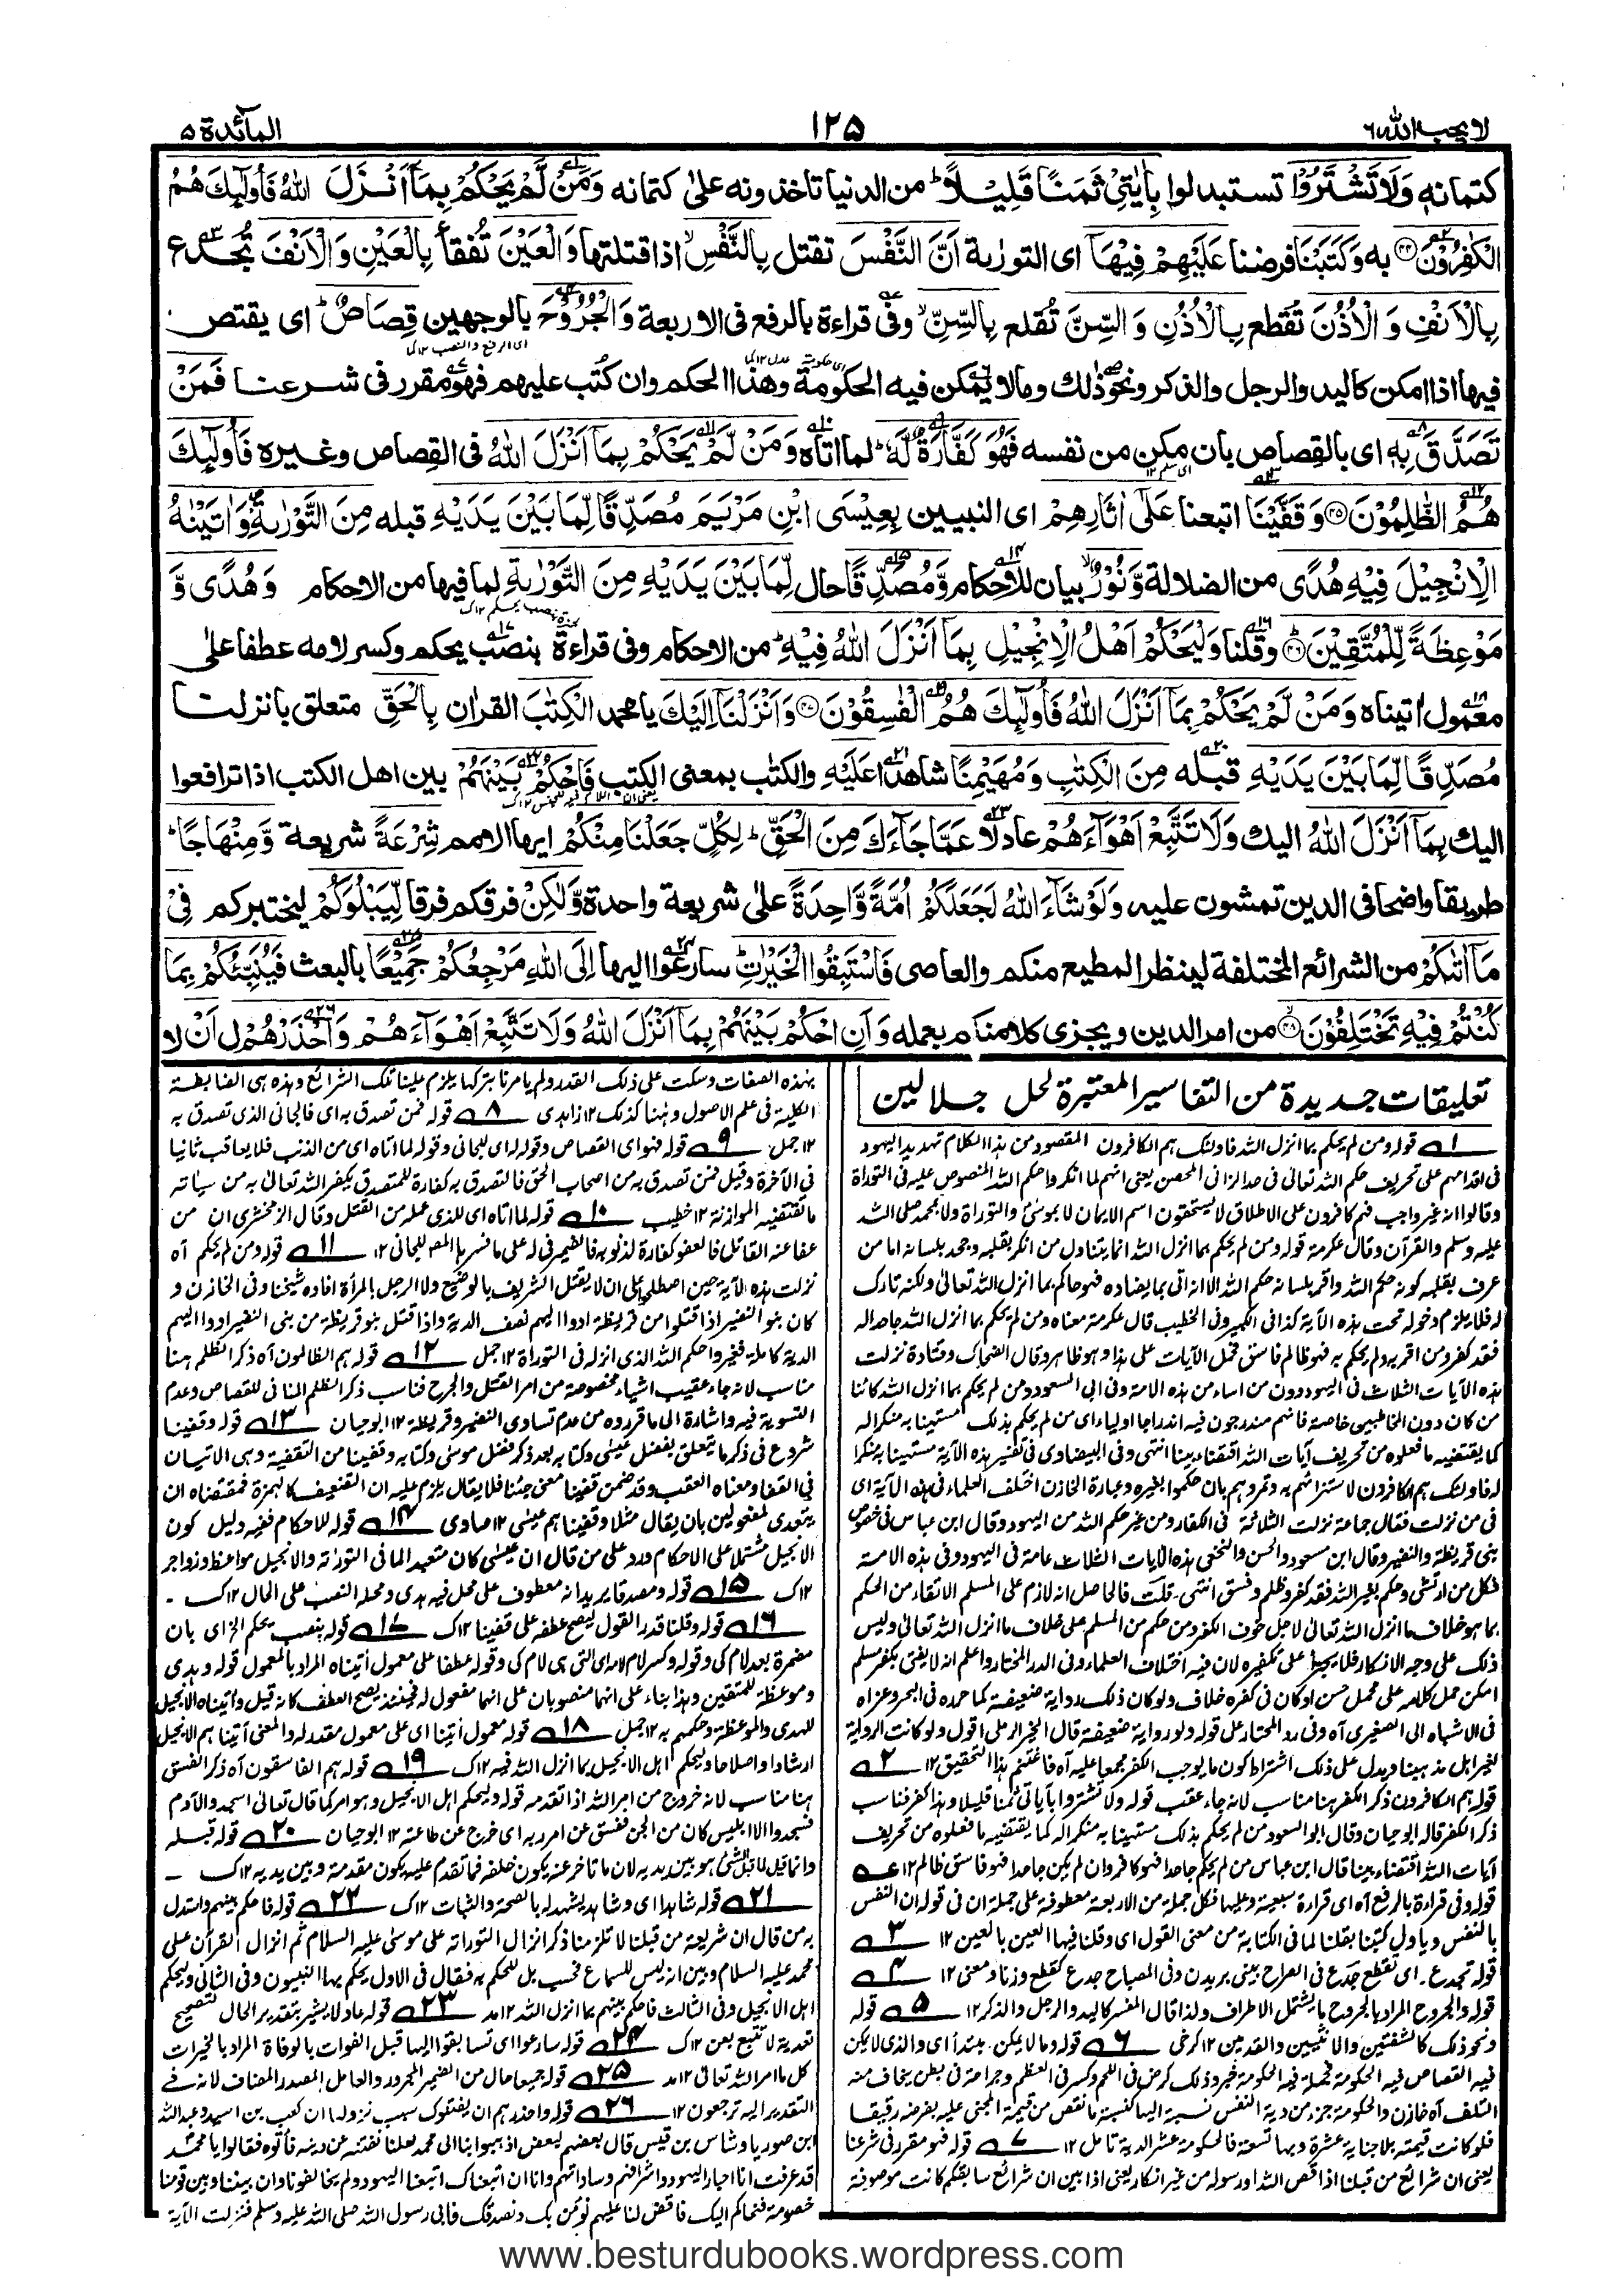 لا يحب الله ٦
١٢٥
المآئدة ٥
كتمانه وَلَا تَشْتَرُوْا تستبدلوا بِاٰيٰتِيْ ثَمَنًا قَلِيْلًا ؕ من الدنيا تاخذونه على كتمانه وَمَنْ لَّمْ يَحْكُمْ بِمَآ اَنْزَلَ اللّٰهُ فَاُولٰٓئِكَ هُمُ
الْكٰفِرُوْنَ ۝۴۴ به وَكَتَبْنَا فرضنا عَلَيْهِمْ فِيْهَآ اى التورٰىة اَنَّ النَّفْسَ تقتل بِالنَّفْسِ اذا قتلتها وَالْعَيْنَ تُفقأ بِالْعَيْنِ وَالْاَنْفَ تُجدع
بِالْاَنْفِ وَ الْاُذُنَ تُقطع بِالْاُذُنِ وَ السِّنَّ تُقلع بِالسِّنِّ وفى قراءة بالرفع فى الاربعة وَالْجُرُوْحَ بالوجهين قِصَاصٌ ؕ اى يقتص
اى الرفع والنصب ١٢
فيها اذا امكن كاليد والرجل والذكر ونحو ذلك وما لا يمكن فيه الحكومة وهذا الحكم وان كُتب عليهم فهو مقرر فى شرعنا فَمَنْ
تَصَدَّقَ بِهٖ اى بالقصاص بان مكن من نفسه فَهُوَ كَفَّارَةٌ لَّهٗ ؕ لما اتاه وَمَنْ لَّمْ يَحْكُمْ بِمَآ اَنْزَلَ اللّٰهُ فى القصاص وغيره فَاُولٰٓئِكَ
هُمُ الظّٰلِمُوْنَ ۝۴۵ وَ قَفَّيْنَا اتبعنا عَلٰٓى اٰثَارِهِمْ اى النبيين بِعِيْسَى ابْنِ مَرْيَمَ مُصَدِّقًا لِّمَا بَيْنَ يَدَيْهِ قبله مِنَ التَّوْرٰىةِ وَاٰتَيْنٰهُ
الْاِنْجِيْلَ فِيْهِ هُدًى من الضلالة وَّنُوْرٌ بيان للاحكام وَّمُصَدِّقًا حال لِّمَا بَيْنَ يَدَيْهِ مِنَ التَّوْرٰىةِ لما فيها من الاحكام وَهُدًى وَّ
مَوْعِظَةً لِّلْمُتَّقِيْنَ ۝۴۶ وقلنا وَلْيَحْكُمْ اَهْلُ الْاِنْجِيْلِ بِمَآ اَنْزَلَ اللّٰهُ فِيْهِ ؕ من الاحكام وفى قراءة بنصب يحكم وكسر لامه عطفا على
معمول اٰتيناه وَمَنْ لَّمْ يَحْكُمْ بِمَآ اَنْزَلَ اللّٰهُ فَاُولٰٓئِكَ هُمُ الْفٰسِقُوْنَ ۝۴۷ وَاَنْزَلْنَآ اِلَيْكَ يا محمد الْكِتٰبَ القران بِالْحَقِّ متعلق بانزلنا
مُصَدِّقًا لِّمَا بَيْنَ يَدَيْهِ قبله مِنَ الْكِتٰبِ وَمُهَيْمِنًا شاهدا عَلَيْهِ والكتٰب بمعنى الكتب فَاحْكُمْ بَيْنَهُمْ بين اهل الكتب اذا ترافعوا
اليك بِمَآ اَنْزَلَ اللّٰهُ اليك وَلَا تَتَّبِعْ اَهْوَآءَهُمْ عادلا عَمَّا جَآءَكَ مِنَ الْحَقِّ ؕ لِكُلٍّ جَعَلْنَا مِنْكُمْ ايها الامم شِرْعَةً شريعة وَّمِنْهَاجًا ؕ
طريقا واضحا فى الدين تمشون عليه وَلَوْ شَآءَ اللّٰهُ لَجَعَلَكُمْ اُمَّةً وَّاحِدَةً على شريعة واحدة وَّلٰكِنْ فرقكم فرقا لِّيَبْلُوَكُمْ ليختبركم فِيْ
مَآ اٰتٰىكُمْ من الشرائع المختلفة لينظر المطيع منكم والعاصى فَاسْتَبِقُوا الْخَيْرٰتِ ؕ سارعوا اليها اِلَى اللّٰهِ مَرْجِعُكُمْ جَمِيْعًا بالبعث فَيُنَبِّئُكُمْ بِمَا
كُنْتُمْ فِيْهِ تَخْتَلِفُوْنَ ۝۴۸ من امر الدين ويجزى كلا منكم بعمله وَاَنِ احْكُمْ بَيْنَهُمْ بِمَآ اَنْزَلَ اللّٰهُ وَلَا تَتَّبِعْ اَهْوَآءَهُمْ وَاحْذَرْهُمْ ل اَنْ لا
تعليقات جديدة من التفاسير المعتبرة لحل جلالين
١ قوله ومن لم يحكم بما انزل الله فاولئك هم الكافرون المقصود من هذا الكلام تهديد اليهود
فى اقدامهم على تحريف حكم الله تعالى فى حد الزانى المحصن يعنى انهم لما انكروا حكم الله المنصوص عليه فى التوراة
وقالوا انه غير واجب فهم كافرون على الاطلاق لا يستحقون اسم الايمان لا بموسى والتوراة ولا بمحمد صلى الله
عليه وسلم والقرآن وقال عكرمة قوله ومن لم يحكم بما انزل الله انما يتناول من انكر بقلبه وجحد بلسانه اما من
عرف بقلبه كونه حكم الله واقر بلسانه حكم الله الا انه اتى بما يضاده فهو حاكم بما انزل الله تعالى ولكنه تارك
له فلا يلزم دخوله تحت هذه الآية كذا فى الكبير وفى الخطيب قال عكرمة معناه ومن لم يحكم بما انزل الله جاحدا له
فقد كفر ومن اقر به ولم يحكم به فهو ظالم فاسق تحمل الآيات على هذا وهو ظاهر وقال الضحاك وقتادة نزلت
هذه الآيات الثلاث فى اليهود دون من اساء من هذه الامة وفى ابى السعود ومن لم يحكم بما انزل الله كائنا
من كان دون المخاطبين خاصة فانهم مندرجون فيه اندراجا اوليا اى من لم يحكم بذلك مستهينا به منكرا له
كما يقتضيه ما فعلوه من تحريف آيات الله اقتضاء بينا انتهى وفى البيضاوى فى تفسير هذه الآية مستهينا به منكرا
له فاولئك هم الكافرون لاستهزائهم به وتمردهم بان حكموا بغيره وعبارة الخازن اختلف العلماء فى هذه الآية اى
فى من نزلت فقال جماعة نزلت الثلاثة فى الكفار ومن غير حكم الله من اليهود وقال ابن عباس فى خصوص
بنى قريظة والنضير وقال ابن مسعود والحسن والنخعى هذه الآيات الثلاث عامة فى اليهود وفى هذه الامة
فكل من ارتشى وحكم بغير الله فقد كفر وظلم وفسق انتهى ۔ قلت فالحاصل انه لازم على المسلم الاتقاء من الحكم
بما هو خلاف ما انزل الله تعالى لاجل خوف الكفر ومن حكم من المسلم على خلاف ما انزل الله تعالى وليس
ذلك على وجه الانكار فلا يجترأ على تكفيره لان فيه اختلاف العلماء وفى الدر المختار واعلم انه لا يفتى بكفر مسلم
امكن حمل كلامه على محمل حسن او كان فى كفره خلاف ولو كان ذلك رواية ضعيفة كما حرره فى البحر وعزاه
فى الاشباه الى الصغرى آه وفى رد المحتار على قوله ولو رواية ضعيفة قال الخير الرملى اقول ولو كانت الرواية
لغير اهل مذهبنا ويدل على ذلك اشتراط كون ما يوجب الكفر مجمعا عليه آه فاغتنم هذا التحقيق ١٢ ٢
قوله هم الكافرون ذكر الكفر هنا مناسب لانه جاء عقب قوله ولا تشتروا بآياتى ثمنا قليلا وهذا كفر فناسب
ذكر الكفر قاله ابو حيان وقال ابو السعود من لم يحكم بذلك مستهينا به منكرا له كما يقتضيه ما فعلوه من تحريف
آيات الله اقتضاء بينا قال ابن عباس من لم يحكم جاحدا فهو كافر وان لم يكن جاحدا فهو فاسق ظالم ١٢
قوله وفى قراءة بالرفع آه اى قراءة سبعية وعليها فكل جملة من الاربعة معطوفة على جملة ان فى قوله ان النفس
بالنفس ويأول كتبنا بقلنا لما فى الكتابة من معنى القول اى وقلنا فيها العين بالعين ١٢ ٣
قوله تجدع ۔ اى تقطع جدع فى الصراح بينى بريدن وفى المصباح جدع كقطع وزنا ومعنى ١٢ ٤
قوله والجروح المراد بالجروح ما يشمل الاطراف ولذا قال المفسر كاليد والرجل والذكر ١٢ ٥ قوله
ونحو ذلك كالشفتين والانثيين والقدمين ١٢ كرخى ٦ قوله وما لا يمكن ۔ مبتدأ اى والذى لا يكن
فيه القصاص فيه الحكومة فجملة فيه الحكومة خبر وذلك كرض فى اللحم وكسر فى العظم وجراحة فى بطن يخاف منه
التلف آه خازن والحكومة جزء من دية النفس نسبته اليها كنسبة ما نقص من قيمة المجنى عليه بفرضه رقيقا
فلو كانت قيمته بلا جناية عشرة وبها تسعة فالحكومة عشر الدية تامل ١٢ ٧ قوله فهو مقرر فى شرعنا
يعنى ان شرائع من قبلنا اذا قص الله او رسوله من غير انكار يعنى اذا بين ان شرائع سابقكم كانت موصوفة
بهذه الصفات وسكت على ذلك القدر ولم يامرنا بتركها يلزم علينا تلك الشرائع وهذه هى الضابطة
الكلية فى علم الاصول وهنا كذلك ١٢ زاهدى ٨ قوله فمن تصدق به اى فالجانى الذى تصدق به
١٢ جمل ٩ قوله فهو اى القصاص وقوله له اى للجانى وقوله لما اتاه اى من الذنب فلا يعاقب ثانيا
فى الآخرة وقيل فمن تصدق به من اصحاب الحق فالتصدق به كفارة للمتصدق يكفر الله تعالى به من سيآته
ما تقتضيه الموازنة ١٢ خطيب ١٠ قوله لما اتاه اى للذى عمله من القتل وقال الزمخشرى ان من
عفا عنه القاتل فالعفو كفارة لذنوبه فالضمير فى له على ما فسر به المصـ للجانى ١٢ ١١ قوله ومن لم يحكم آه
نزلت هذه الآية حين اصطلحوا على ان لا يقتل الشريف بالوضيع ولا الرجل بالمرأة افاده شيخنا وفى الخازن و
كان بنو النضير اذا قتلوا من قريظة ادوا اليهم نصف الدية واذا قتل بنو قريظة من بنى النضير ادوا اليهم
الدية كاملة فغيروا حكم الله الذى انزله فى التوراة ١٢ جمل ١٢ قوله هم الظالمون آه ذكر الظلم هنا
مناسب لانه جاء عقيب اشياء مخصوصة من امر القتل والجرح فناسب ذكر الظلم المنافى للقصاص وعدم
التسوية فيه واشارة الى ما قرروه من عدم تساوى النضير وقريظة ١٢ ابو حيان ١٣ قوله وقفينا
شروع فى ذكر ما يتعلق بفضل عيسى وكتابه بعد ذكر فضل موسى وكتابه وقفينا من التقفية وهى الاتيان
فى القفا ومعناه العقب وقد ضمن قفينا معنى جئنا فلا يقال يلزم عليه ان التضعيف كالهمزة فمقتضاه ان
يتعدى لمفعولين بان يقال مثلا وقفيناهم عيسى ١٢ صاوى ١٤ قوله للاحكام ففيه دليل كون
الانجيل مشتملا على الاحكام ورد على من قال ان عيسى كان متعبدا لما فى التوراة والانجيل مواعظ وزواجر
١٢ ك ١٥ قوله ومصدقا يريد انه معطوف على محل فيه هدى ومحله النصب على الحال ١٢ ك ۔
١٦ قوله وقلنا قدر القول ليصح عطفه على قفينا ١٢ ك ١٧ قوله بنصب يحكم الخ اى بان
مضمرة بعد لام كى وقوله وكسر لام لامه اى التى هى لام كى وقوله عطفا على معمول آتيناه المراد بالمعمول قوله وهدى
وموعظة للمتقين وهذا بناء على انهما منصوبان على انهما مفعول له فحينئذ يصح العطف كانه قيل وآتيناه الانجيل
للهدى والموعظة وحكمهم به ١٢ جمل ١٨ قوله معمول آتينا اى على معمول مقدر له والمعنى آتينا هم الانجيل
ارشادا واصلاحا وليحكم اهل الانجيل بما انزل الله فيه ١٢ ك ١٩ قوله هم الفاسقون آه ذكر الفسق
هنا مناسب لانه خروج من امر الله اذا تقدمه قوله وليحكم اهل الانجيل وهو امر كما قال تعالى اسجدوا لآدم
فسجدوا الا ابليس كان من الجن ففسق عن امر ربه اى خرج عن طاعته ١٢ ابو حيان ٢٠ قوله قبله
وانما قيل لما قبل الشئ هو بين يديه لان ما تاخر عنه يكون خلفه فما تقدم عليه يكون مقدمه وبين يديه ١٢ ك ۔
٢١ قوله شاهدا اى وشاهد يشهد له بالصحة والثبات ١٢ ك ٢٢ قوله فاحكم بينهم واستدل
به من قال ان شريعة من قبلنا لا تلزمنا ذكر انزال التوراة على موسى عليه السلام ثم انزال القرآن على
محمد عليه السلام وبين انه ليس للسماع فحسب بل للحكم به فقال فى الاول يحكم بها النبيون وفى الثانى وليحكم
اهل الانجيل وفى الثالث فاحكم بينهم بما انزل الله ١٢ مد ٢٣ قوله عادلا يشير بتقدير الحال لتصحيح
تعدية لا تتبع بعن ١٢ ك ٢٤ قوله سارعوا اى تسابقوا اليها قبل الفوات بالوفاة المراد بالخيرات
كل ما امر الله تعالى ١٢ مد ٢٥ قوله جميعا حال من الضمير المجرور والعامل المصدر المضاف لانه فى
التقدير اليه ترجعون ١٢ ٢٦ قوله واحذرهم ان يفتنوك سبب نزولها ان كعب بن اسيد وعبد الله
ابن صوريا وشاس بن قيس قال بعضهم لبعض اذهبوا بنا الى محمد لعلنا نفتنه عن دينه فأتوه فقالوا يا محمد
قد عرفت انا احبار اليهود واشرافهم وساداتهم وانا ان اتبعناك اتبعنا اليهود ولم يخالفونا وان بيننا وبين قومنا
خصومة فنحاكم اليك فاقض لنا عليهم نؤمن بك ونصدقك فابى رسول الله صلى الله عليه وسلم فنزلت الآية
www.besturdubooks.wordpress.com